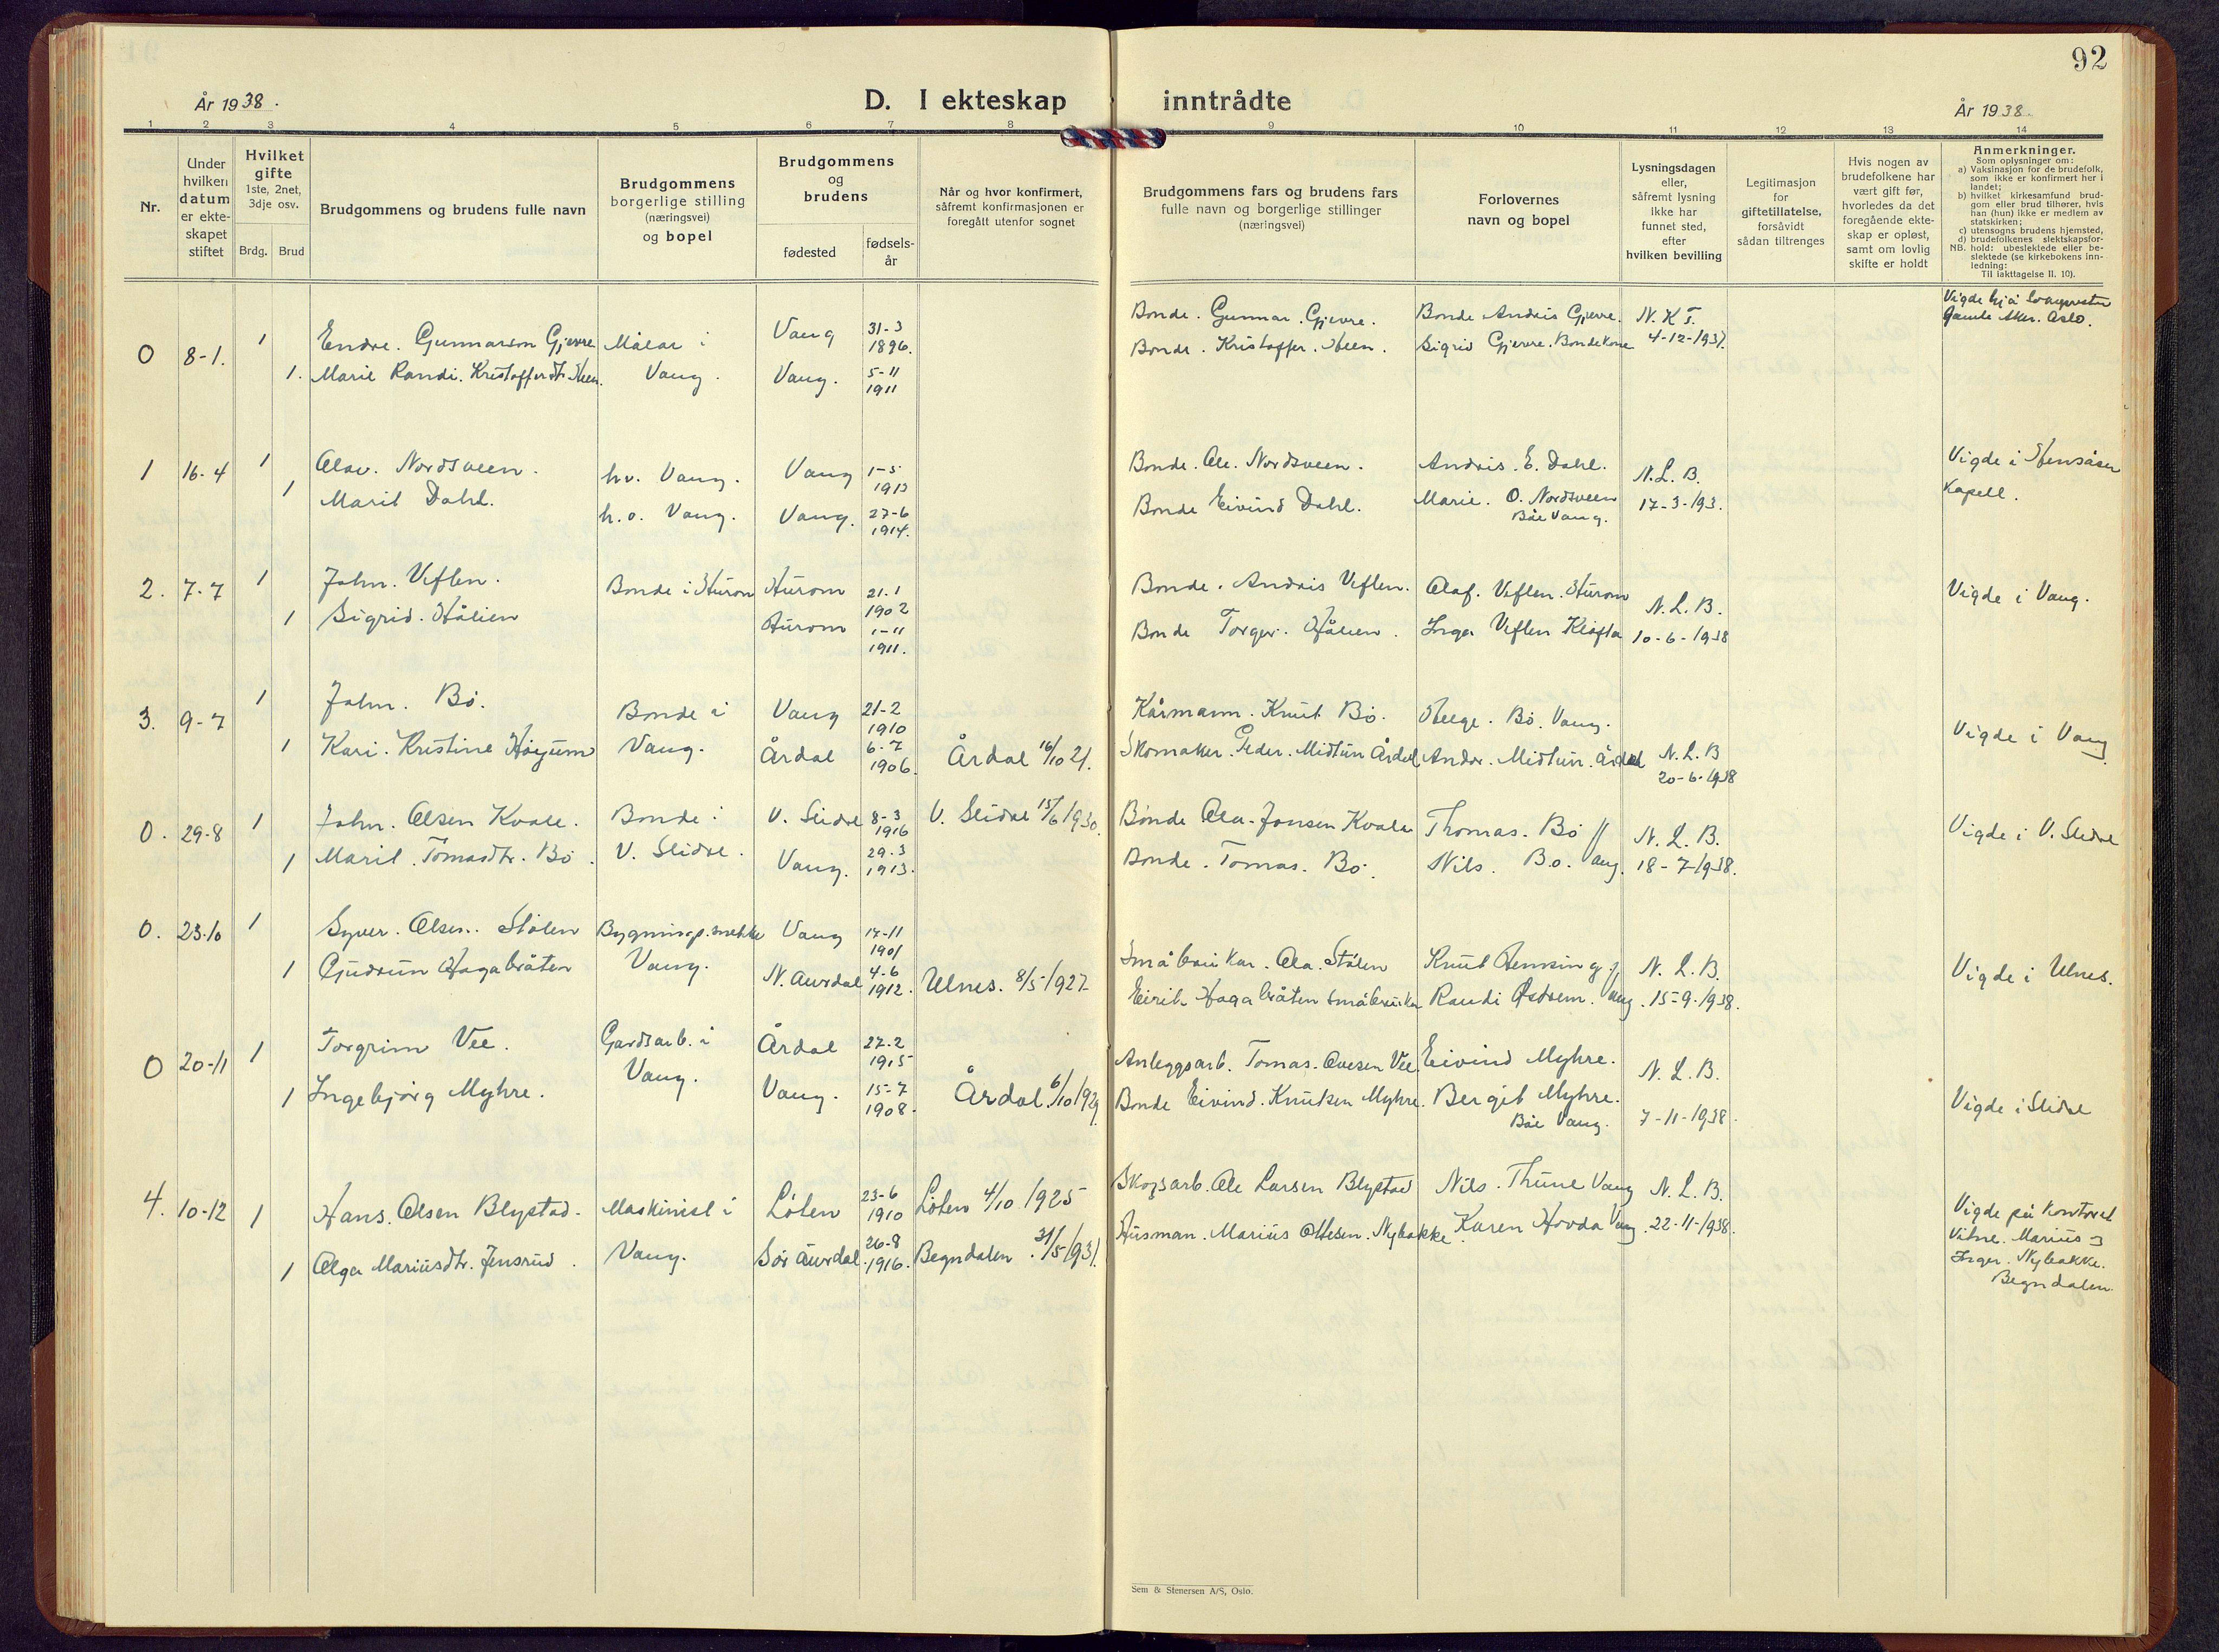 92
År 1938.
D. I ekteskap inntrådte
År 1938.
1 2 3 4 5 6 7 8 9 10 11 12 13 14
Nr.
Under
hvilken
datum
er ekte-
skapet
stiftet
Hvilket
gifte
1ste, 2net,
3dje osv.
Brdg. Brud
Brudgommens og brudens fulle navn
Brudgommens
borgerlige stilling
(næringsvei)
og bopel
Brudgommens
og
brudens
fødested
fødsels-
år
Når og hvor konfirmert,
såfremt konfirmasjonen er
foregått utenfor sognet
Brudgommens fars og brudens fars
fulle navn og borgerlige stillinger
(næringsvei)
Forlovernes
navn og bopel
Lysningsdagen
eller,
såfremt lysning
ikke har
funnet sted,
efter
hvilken bevilling
Legitimasjon
for
giftetillatelse,
forsåvidt
sådan tiltrenges
Hvis nogen av
brudefolkene har
vært gift før,
hvorledes da det
foregående ekte-
skap er opløst,
samt om lovlig
skifte er holdt
Anmerkninger.
Som oplysninger om:
a) Vaksinasjon for de brudefolk,
som ikke er konfirmert her i
landet;
b) hvilket kirkesamfund brud-
gom eller brud tilhører, hvis
han (hun) ikke er medlem av
statskirken;
c) utensogns brudens hjemsted,
d) brudefolkenes slektskapsfor-
NB. hold: ubeslektede eller be-
slektede (se kirkebokens inn-
ledning:
Til iakttagelse II. 10).
0 8-1. 1 Endre. Gunnarson Gjevre Målar i Vang 31-3 1896. Bonde. Gunnar. Gjevre. Bonde Andris Gjevre. N. K. T. Vigde hjå
1. Marie Randi. Kristofferdtr. Vang. Vang. 5-11 1911 Bonde. Kristoffer. Sigrid Gjevre. Bondekone 4-12-1937. Gamle Aker. Oslo.
1 16-4 1 Olav. Nordsveen. hv. Vang. Vang 1-5 1913 Bonde. Ole. Nordsveen. Andris. E. Dahl. N. L. B. Vigde i Hensåsen
1 Marit Dahl. h.o. Vang. Vang. 27-6 1914. Bonde Eivind Dahl. Marie. O. Nordsveen 17-3-193. Kapell.
Båe Vang.
2. 7-7 1 John. Veflen. Bonde i Hurom Hurom 21.1 1902 Bonde. Andris Veflen. Olaf. Veflen. Hurom N. L. B. Vigde i Vang.
1 Sigrid. Hålien Hurom 1-11 1911. Bonde Torger. Hålien. Inga Veflen Kløfta 10-6-1938
3. 9-7 1 John. Bø. Bonde i Vang 21-2 1910 Kårmann. Knut Bø. Helge. Bø. Vang.
1 Kari. Kristine Høyum Vang. Årdal 6-7 1906. Årdal 16/10 21. Skomaker. Peder. Midtun Årdal Andr. Midtun. Årdal N. L. B 20-6-1938 Vigde i Vang
0. 29-8 1 John. Olsen Kvale. Bonde i V. Slidre 8-3 1916 V. Slidre 15/6 1930. Bonde Ola-Jonsen Kvale Thomas. Bø N. L. B. Vigde i V. Slidre
1 Marit. Tomasdtr. Bø. V. Slidre. Vang. 29.3 1913. Bonde. Tomas. Bø. Nils. Bø. Vang. 18-7-1938.
0. 23-10 1 Syver. Olsen. Stølen Bygningssnekke Vang 17-11 1901 Småbrukar. Ola. Stølen Knut N. L. B. Vigde i Ulnes.
1 Gudrun Hagabråten Vang. N. Aurdal 4-6 1912. Ulnes. 8/5-1927 Eirik Hagabråten småbruker Randi Vang. 15-9-1938.
0 20-11 1 Torgrim Vee. Gardsarb. i Årdal 27-2 1915 Anleggsarb. Tomas. Ovesen Vee Eivind Myhre. N. L. B.
1 Ingebjørg Myhre. Vang. Vang. 15-7 1908. Årdal. 6/10 1929 Bonde Eivind. Knutsen Myhre. Bergit Myhre. 7-11-1938. Vigde i Slidre
Båe Vang.
4. 10-12 1 Hans. Olsen Blystad. Maskinist i Løten 23-6 1910 Løten 4/10 1925 Skogsarb. Ole Larsen Blystad Nils. Thune Vang N. L. B. Vigde på kontoret
1 Olga Mariusdtr. Jensrud. Vang. Sør Aurdal. 26-8 1916. Begndalen. 31/5 1931. Husman. Marius Ottesen. Nybakke. Karen Hovda Vang. 22-11-1938. Vitne. Marius og
Inger. Nybakke.
Begndalen.
Sem & Stenersen A/S, Oslo.